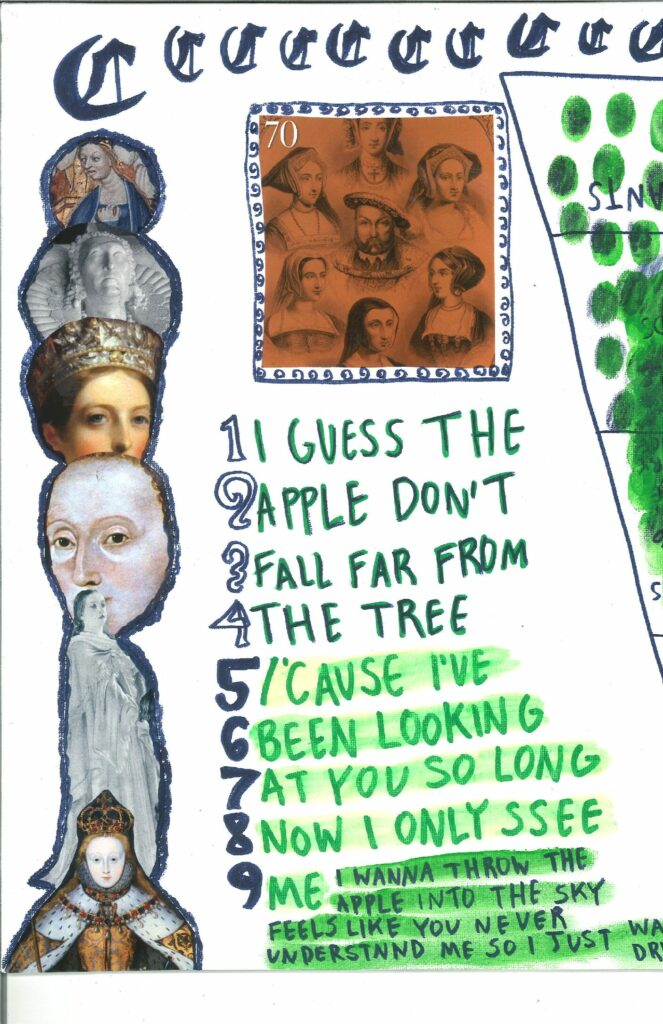 C C C C C C C C C C
70
ANTS
1 I GUESS THE
2 APPLE DON'T
3 FALL FAR FROM
4 THE TREE
5 /'CAUSE I'VE
6 BEEN LOOKING
7 AT YOU SO LONG
8 NOW I ONLY SSEE
9 ME
I WANNA THROW THE
APPLE INTO THE SKY
FEELS LIKE YOU NEVER
UNDERSTNND ME SO I JUST WA
DR